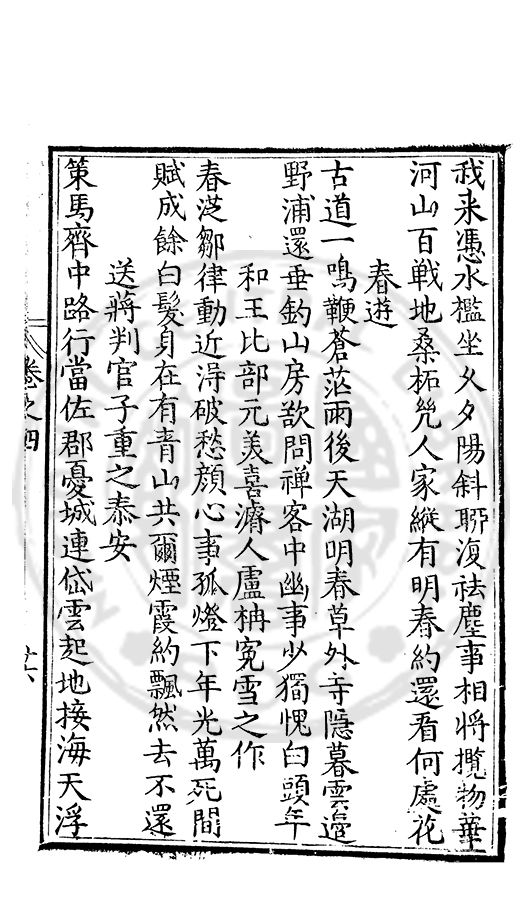 我来憑水檻坐乆夕陽斜聊復祛塵事相將攬物華
河山百戰地桑柘㡬人家縱有明春約還看何處花
春遊
古道一鳴鞭蒼茫雨後天湖明春草外寺隱暮雲邉
野浦還垂釣山房欲問禪客中幽事少獨愧白頭年
和王比部元美喜濬人盧柟寃雪之作
春從鄒律動近淂破愁顔心事孤燈下年光萬死間
賦成餘白髮身在有青山共爾煙霞約飄然去不還
送蔣判官子重之泰安
策馬齊中路行當佐郡憂城連岱雲起地接海天浮
卷之四